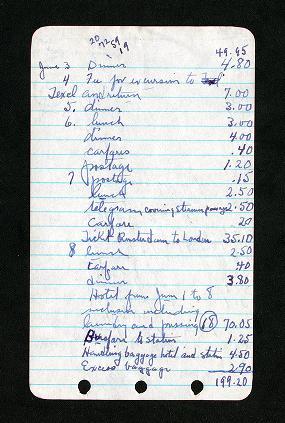 20 7259
19
49.95
June 3 Dinner 4.80
4 Fee for excursion to
Texel and return 7.00
5. dinner 3.00
6. lunch 3.00
dinner 4.00
carfares .40
postage 1.20
7 postage .15
lunch 2.50
telegram 2.50
Carfare 20
Ticket Amsterdam to London 35.10
8 lunch 2.50
Carfare 40
dinner 3.80
Hotel from June 1 to 8
inclusive including
laundry and pressing (18) 70.05
Busfare to station 1.25
Handling baggage hotel and station 4.50
Excess baggage 2.90
199.20